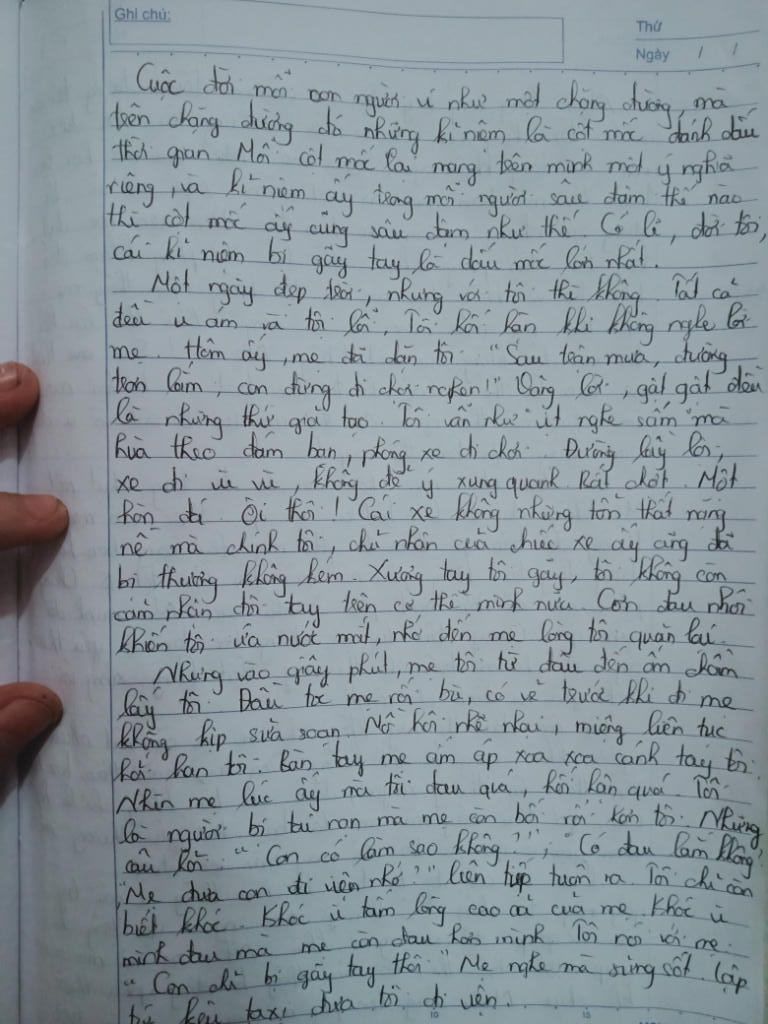 Ghi chú:
Thứ
Ngày / /
Cuộc đời mỗi con người ví như một chặng đường, mà
trên chặng đường đó những kỉ niệm là cột mốc đánh dấu
thời gian. Mỗi cột mốc lại mang trên mình một ý nghĩa
riêng, và kỉ niệm ấy trong mỗi người sâu đậm thế nào
thì cột mốc ấy cũng sâu đậm như thế. Có lẽ, đời tôi,
cái kỉ niệm bị gãy tay là dấu mốc lớn nhất.
Một ngày đẹp trời, nhưng với tôi thì không. Tất cả
đều u ám và tội lỗi. Tôi hối hận khi không nghe lời
mẹ. Hôm ấy, mẹ đã dặn tôi: "Sau trận mưa, đường
trơn lắm, con đừng đi chơi nghen!" Vâng lời, gật gật đầu
là những thứ giả tạo. Tôi vẫn như "vịt nghe sấm" mà
hùa theo đám bạn, phóng xe đi chơi. Đường lầy lội,
xe đi vù vù, không để ý xung quanh. Rất chột. Một
hòn đá. Ôi thôi! Cái xe không những tổn thất nặng
nề mà chính tôi, chủ nhân của chiếc xe ấy cũng đã
bị thương không kém. Xương tay tôi gãy, tôi không còn
cảm nhận đôi tay trên cơ thể mình nữa. Cơn đau nhói
khiến tôi ứa nước mắt, nhớ đến mẹ lòng tôi quặn lại.
Nhưng vào giây phút, mẹ tôi từ đâu đến ôm chầm
lấy tôi. Đầu tóc mẹ rối bù, có vẻ trước khi đi mẹ
không kịp sửa soạn. Mồ hôi nhễ nhại, miệng liên tục
hỏi han tôi. Bàn tay mẹ ấm áp xoa xoa cánh tay tôi.
Nhìn mẹ lúc ấy mà tôi đau quá, hối hận quá. Tôi
là người bị tai nạn mà mẹ còn bối rối hơn tôi. Những
câu hỏi: "Con có làm sao không?"; "Có đau lắm không?"
"Mẹ đưa con đi viện nhé?" liên tiếp tuôn ra. Tôi chỉ còn
biết khóc. Khóc vì tấm lòng cao cả của mẹ. Khóc vì
mình đau mà mẹ còn đau hơn mình. Tôi nói với mẹ:
"Con chỉ bị gãy tay thôi". Mẹ nghe mà sửng sốt, lập
tức kêu taxi đưa tôi đi viện.